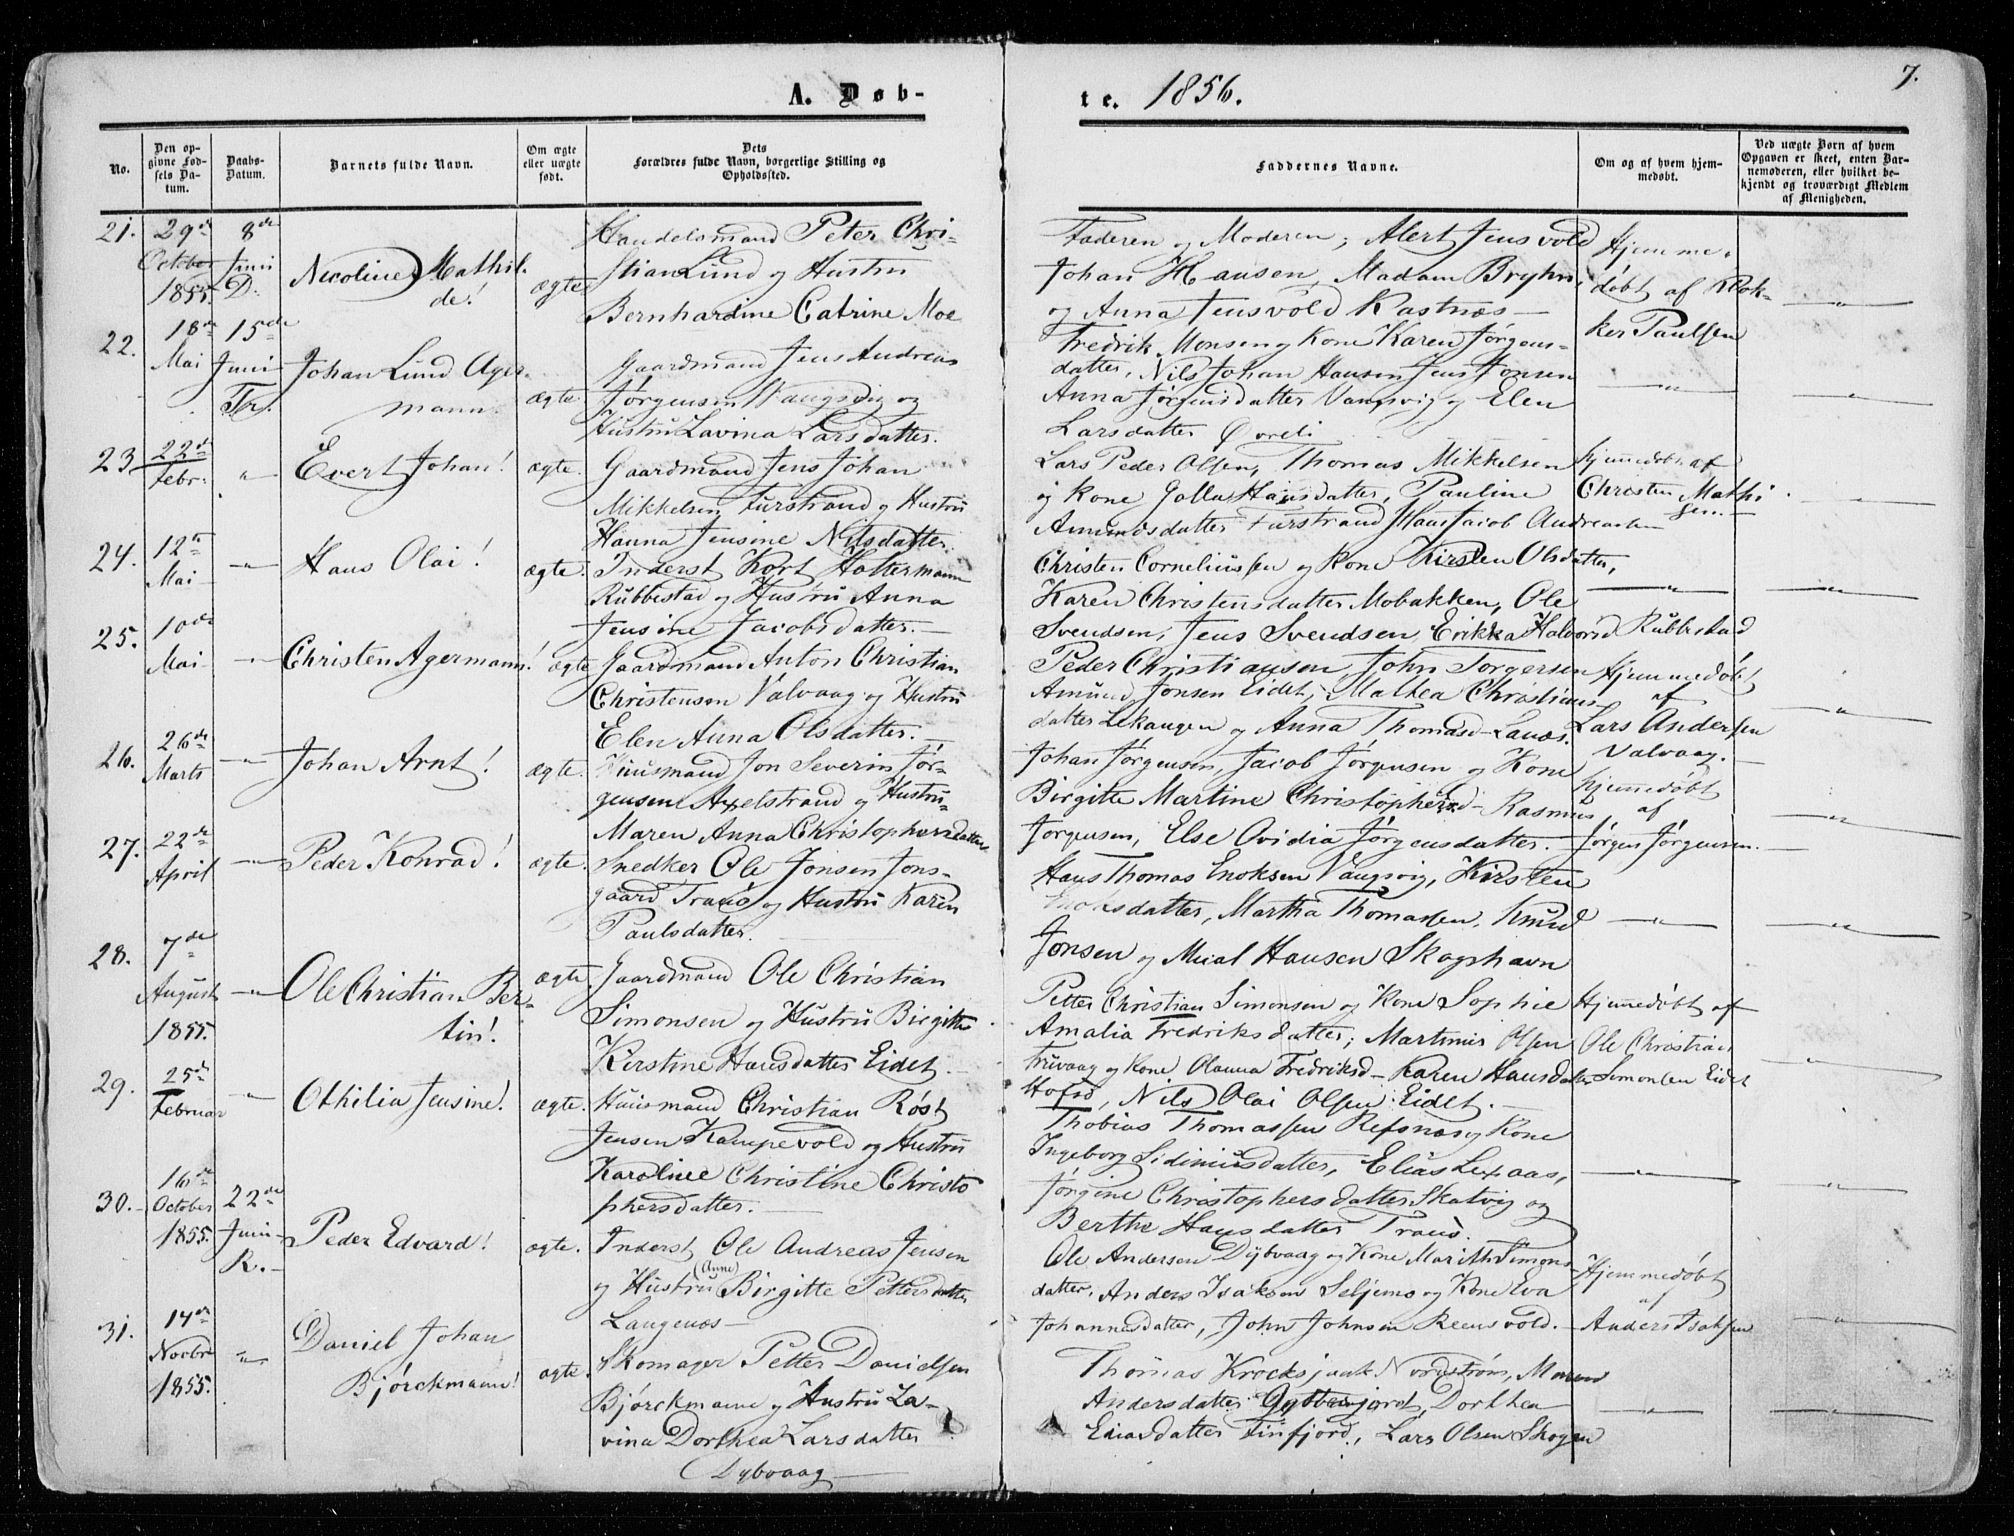 7.
A. Døb-
te. 1856.
No.
Den op-
givne Fød-
sels Da-
tum.
Daabs-
Datum.
Barnets fulde Navn.
Om ægte
eller uægte
født.
Dets
Forældres fulde Navn, borgerlige Stilling og
Opholdssted.
Faddernes Navne.
Om og af hvem hjem-
medøbt.
Ved uægte Børn af hvem
Opgaven er skeet, enten Bar-
nemoderen, eller hvilket be-
kjendt og troværdigt Medlem
af Menigheden.
21.
29de
October
1855.
8de
Juni
D.
Nicoline Mathil-
de!
ægte
Handelsmand Peter Chri-
stian Lund og Hustru
Bernhardine Catrine Moe
Faderen og Moderen; Alert Jensvold
Johan Hansen, Madam Bryhn,
og Anna Jensvold Kastnæs
Hjemme-
døbt af Klok-
ker Paulsen
22.
18de
Mai
15de
Juni
Tr.
Johan Lund Ager-
mann
ægte
Gaardmand Jens Andreas
Jørgensen Vangsvig og
Hustru Lavina Larsdatter.
Fredrik Monsen og Kone Karen Jørgens-
datter, Nils Johan Hansen Jens Jonsen
Anna Jørgensdatter Vangsvig og Elen
Larsdatter
23.
22de
Febr.
Evert Johan!
ægte.
Gaardmand Jens Johan
Mikkelsen Furstrand og Hustru
Hanna Jensine Nilsdatter.
Lars Peder Olsen, Thomas Mikkelsen
og Kone Golla Hansdatter, Pauline
Amundsdatter Furstrand Hans Jacob Andreasen
Hjemmedøbt af
Christen Mathi-
sen.
24.
12te
Mai
Hans Olai!
ægte.
Inderst Kort Holtermann
Rubbestad og Hustru Anna
Jensine Jacobsdatter.
Christen Corneliussen og Kone Kirsten Olsdatter,
Karen Christensdatter Mobakken, Ole
Svendsen, Jens Svendsen, Erikka Halvorsd Rubbestad
25.
10de
Mai
Christen Agermann!
ægte
Gaardmand Anton Christian
Christensen Valvaag og Hustru
Elen Anna Olsdatter.
Peder Christiansen John Torgersen
Amund Jonsen Eidet, Mathea Christians-
datter Lekangen og Anna Thomasd Lanæs.
Hjemmedøbt
af
Lars Andersen
Valvaag.
26.
26de
Marts
Johan Arnt!
ægte.
Huusmand Jon Severin Jør-
gensen Axelstrand og Hustru
Maren Anna Christophersdatter
Johan Jørgensen, Jacob Jørgensen og Kone
Birgitte Martine Christophersd- Rasmus
Jørgensen, Else Ovidia Jørgensdatter.
Hjemmedøbt
af
Jørgen Jørgensen.
27.
22de
April
Peder Konrad!
ægte.
Snedker Ole Jonsen Jons-
gaard Tranø og Hustru Karen
Paulsdatter.
Hans Thomas Enoksen Vangsvig, Kirsten
Enoksdatter, Martha Thomassen, Knud
Jonsen og Mical Hansen Skogshavn
28.
7de
August
1855.
Ole Christian Ber-
tin!
ægte.
Gaardmand Ole Christian
Simonsen og Hustru Birgitte
Kirstine Hansdatter Eidet.
Petter Christian Simonsen og Kone Sophie
Amalia Fredriksdatter; Martinus Olsen
Trivaag og Kone Olanna Fredriksd- Karen Hansdatter
Hofsø, Nils Olai Olsen Eidet.
Hjemmedøbt af
Ole Christian
Simonsen Eidet
29.
25de
Februar
Othilia Jensine!
ægte.
Huusmand Christian Røst
Jensen Kampevold og Hustru
Karoline Christine Christo
phersdatter.
Thobias Thomassen Refsnæs og Kone
Ingeborg Sidiniusdatter, Elias Lexaas,
Jørgine Christophersdatter Skatvig og
Berthe Hansdatter Tranø.
30.
16de
October
1855.
22de
Juni
R.
Peder Edvard!
ægte.
Inderst Ole Andreas Jensen
(Anne)
og Hustru Birgitte Pettersdatter
Langenæs
Ole Andersen Dybvaag og Kone Marith Simons-
datter, Anders Isaksen Seljems og Kone Eva
Johannesdatter, John Johnsen Reensvold.
Hjemmedøbt
af
Anders Isaksen
31.
14de
Novbr
1855.
Daniel Johan
Bjørckmann!
ægte.
Skomager Petter Danielsen
Bjørckmann og Hustru La-
vina Dorthea Larsdatter
Dybvaag
Thomas Krocksjaak Nordstrøm, Maren
Andersdatter Gybterjord, Dorthea
Eliasdatter Finfjord, Lars Olsen Skogen